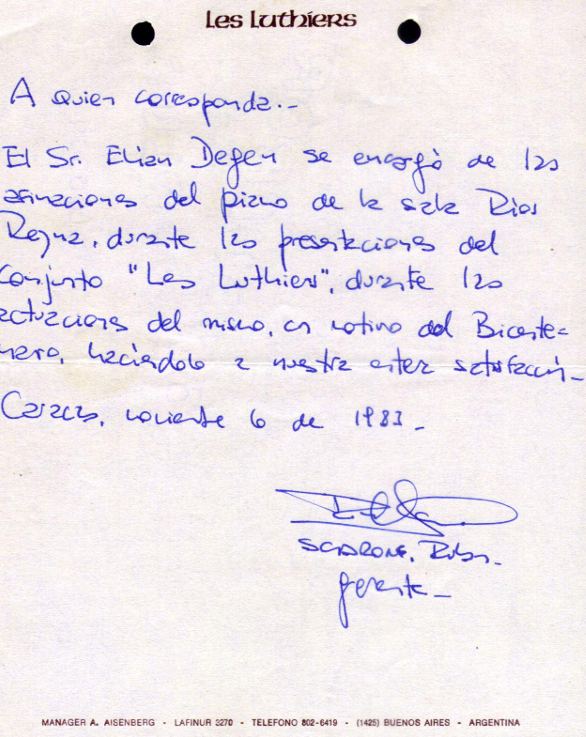 Les Luthiers
A quien corresponda.-
El Sr. Elian Degen se encargó de las
afinaciones del piano de la sala Ríos
Reyna, durante las presentaciones del
Conjunto "Les Luthiers", durante las
actuaciones del mismo, en motivo del Bicente=
nario, haciéndolo a nuestra entera satisfacción_
Caracas, noviembre 6 de 1983_
SCARONE, Rubén_
gerente_
MANAGER A. AISENBERG - LAFINUR 3270 - TELEFONO 802-6419 - (1425) BUENOS AIRES - ARGENTINA